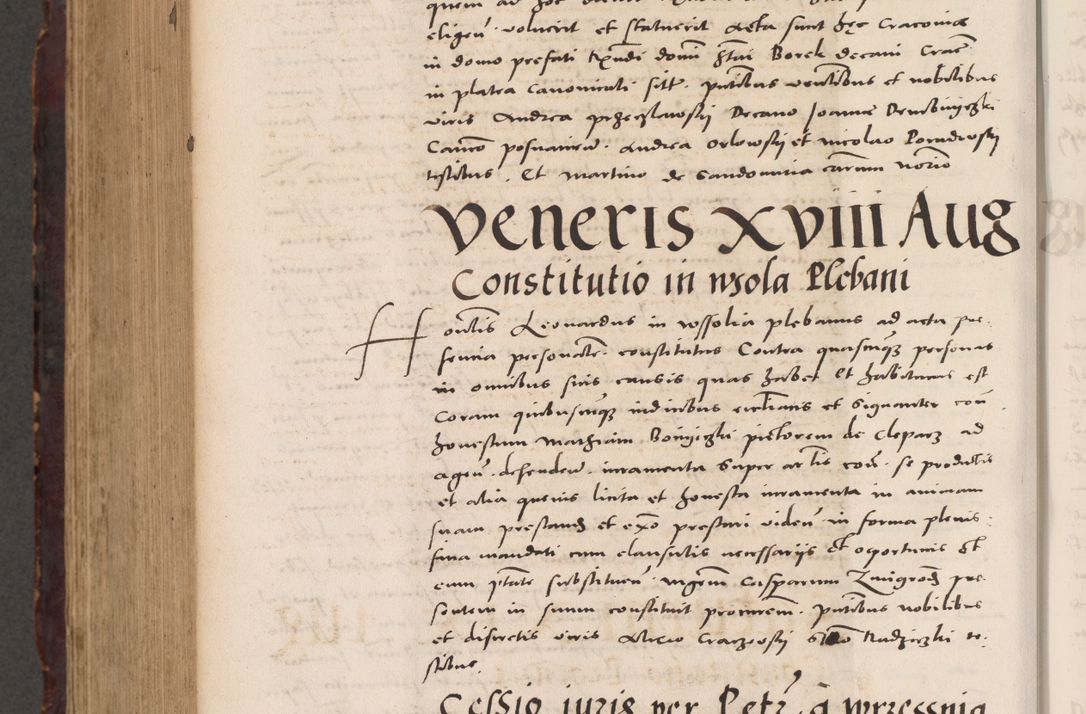 eligen voluerit et statuerit Acta sunt hec Cracovie
in domo prefati Rxndi domi Stai Borek decani Crac
in platea Canonicali sitt. pntibus venlibus et nobilibus
viris Andrea przeczlawskj Decano Joanne
Canco posnanien. Andrea Orlowskj et nicolao
testibus. Et martino de Sandomiria
Veneris XVIII Aug
Constitutio in wsola Plebani
Honlis Leonardus in Wssolia plebanus ad acta pre-
sencia personalte. constitutus Contra quascunqz personas
in omnibus suis causis quas habet Et habiturus est
Coram quibuscunqz iudicibus eccliasis et Signanter con
honestum Mathiam pictorem de Cleparz ad
agen. defenden. iuramenta super ar lis con. se produclis
et alia quevis licita et honesta iuramenta in animam
suam prestand et exo prestari viden in forma plenis-
sima mandati cum clausulis necessarijs Et oportunis Et
cum ptate substituen. mgrm Casparum Zmigrod pre-
sentem in suum constituit procurem. pntibus nobilibus
et discretis viris Alexio te-
stibus.
Cessio iuris per Petr. a wrzessnia